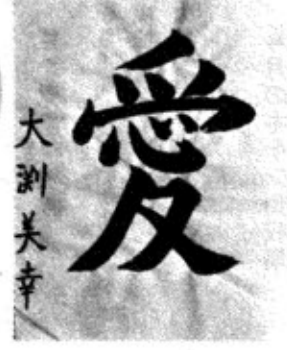 愛
大渕美幸